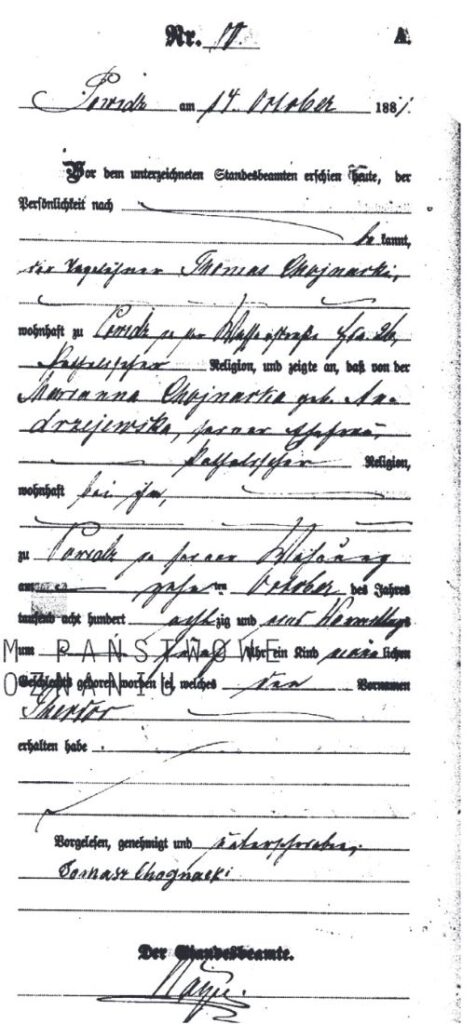 Nr. A.
Powidz am 14. October 1881.
Vor dem unterzeichneten Standesbeamten erschien heute, der
Persönlichkeit nach
bekannt,
der Tagelöhner Thomas Chojnacki,
wohnhaft zu Powidz in der Wasserstraße
katholischer Religion, und zeigte an, daß von der
Marianna Chojnacka geb. An-
drzejewska, seiner Ehefrau,
katholischer Religion,
wohnhaft bei ihm,
zu Powidz in seiner Wohnung
am zehnten October des Jahres
tausend acht hundert achtzig und eins Vormittags
um fünf Uhr ein Kind männlichen
M PAŃSTWOWE
Geschlechts geboren worden sei, welches den Vornamen
OZNANIU
Theodor
erhalten habe
Vorgelesen, genehmigt und unterschrieben,
Tomasz Chognacki
Der Standesbeamte.